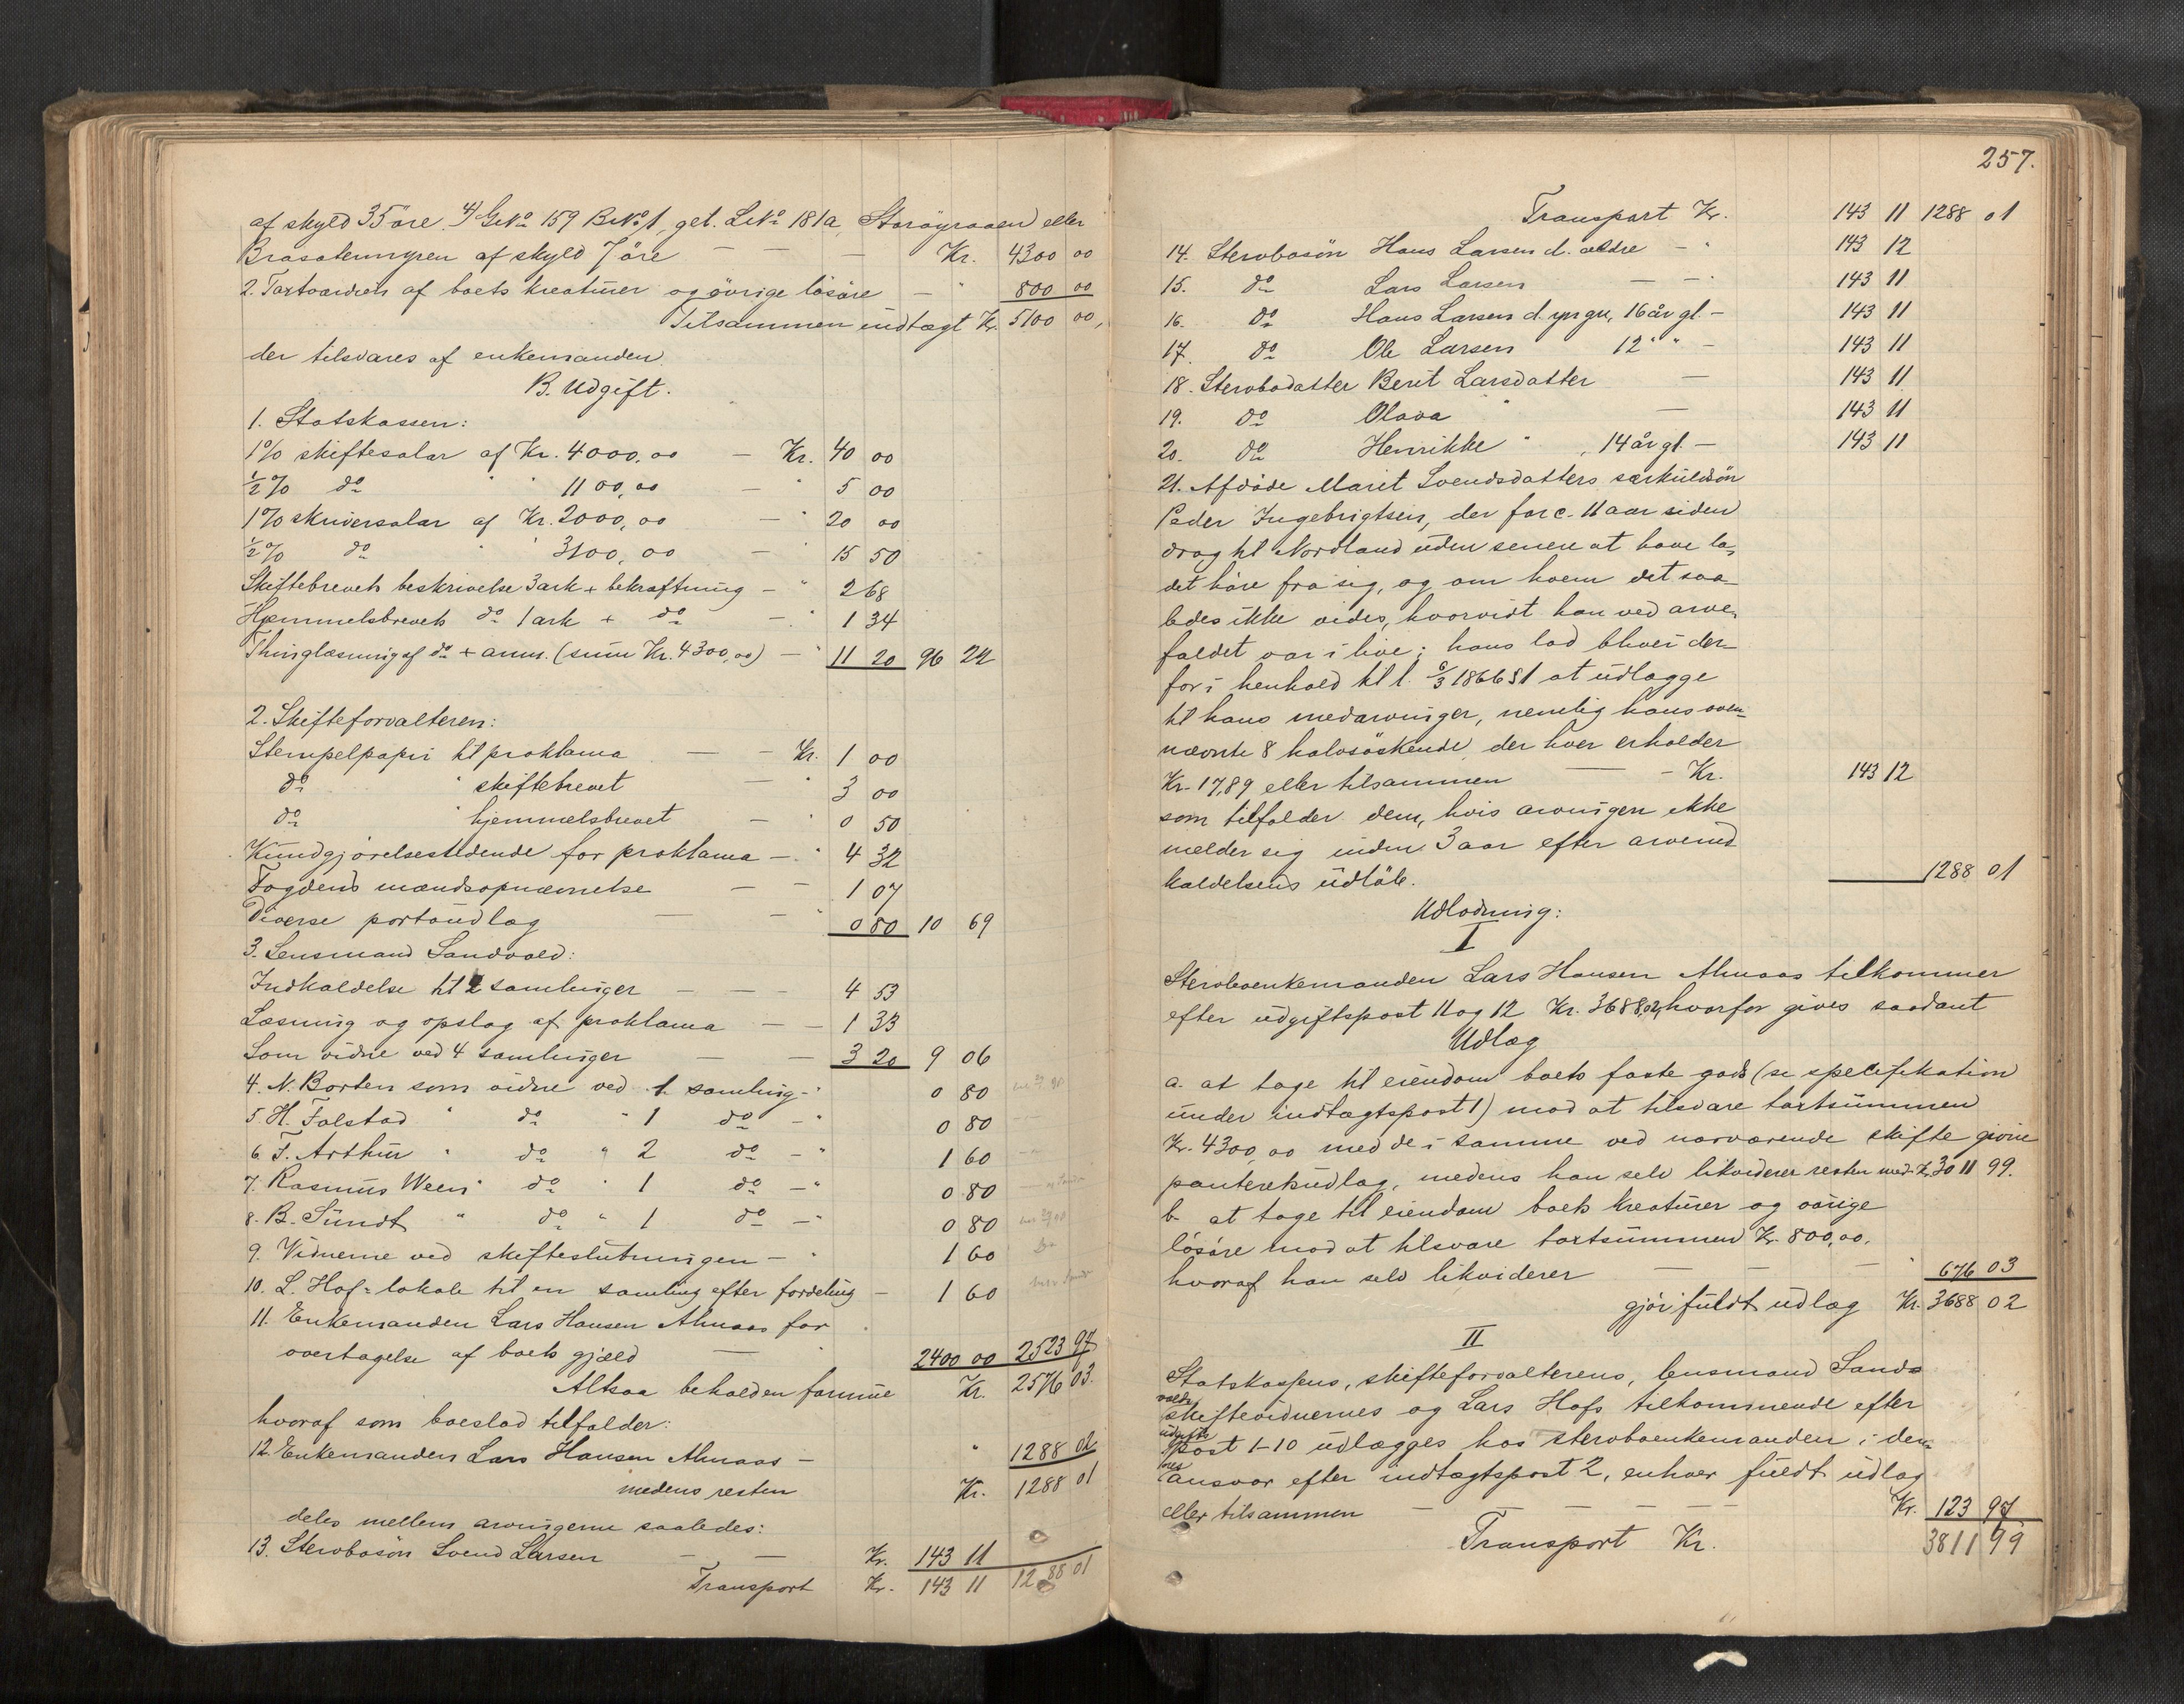 af skyld 35 öre. 4) GrNo 159 BrNo 1, get. LrNo 181a, Storöyraaen eller
Brasatermyren af skyld 7 öre — — — Kr. 4300 00
2. Taxtværdien af boets kreaturer og övrige lösöre — " 800 00
Tilsammen indtægt Kr. 5100 00,
der tilsvares af enkemanden.
B. Udgift.
1. Statskassen:
1% skiftesalar af Kr. 4000,00 — Kr. 40 00
½% do " " 1100,00 — " 5 00
1% skriversalar af Kr. 2000,00 — " 20 00
½% do " " 3100,00 — " 15 50
Skiftebrevets beskrivelse 3 ark + bekræftning — " 2 68
Hjemmelsbrevets do 1 ark + do — " 1 34
Thinglæsning af do + anm. (sum Kr. 4300,00) — " 11 20 96 22
2. Skifteforvalteren:
Stempelpapir til proklama — — Kr. 1 00
do " skiftebrevet — " 3 00
do " hjemmelsbrevet — " 0 50
Kundgjörelsestidende for proklama — " 4 32
Fogdens mandsopnævnelse — — 1 07
Diverse portoudlæg — — " 0 80 10 69
3. Lensmand Sandvold:
Indkaldelse til 2 samlinger — — — 4 53
Læsning og opslag af proklama — — 1 33
Som vidne ved 4 samlinger — — 3 20 9 06
4. N. Borten som vidne ved 1 samling — " 0 80
5. H. Folstad " do " 1 do — " 0 80
6. T. Arthur " do " 2 do — " 1 60
7. Rasmus Ween " do " 1 do — " 0 80
8. B. Sundt " do " 1 do — " 0 80
9. Vidnerne ved skifteslutningen — " 1 60
10. L. Hof = lokale til en samling efter fordeling — 1 60
11. Enkemanden Lars Hansen Almaas for
overtagelse af boets gjæld — " 2400 00 2523 97
Altsaa beholden formue Kr. 2576 03.
hvoraf som boeslod tilfalder:
12. Enkemanden Lars Hansen Almaas — " 1288 02
medens resten Kr. 1288 01
deles mellem arvingerne saaledes:
13. Stervbosön Svend Larsen — — Kr. 143 11
Transport Kr. 143 11 1288 01
257.
Transport Kr. 143 11 1288 01
14. Stervbosön Hans Larsen d. ældre — " 143 12
15. do Lars Larsen — — " 143 11
16. do Hans Larsen d. yngre, 16 år gl. — 143 11
17. do Ole Larsen 12 " " — 143 11
18. Stervbodatter Berit Larsdatter — 143 11
19. do Olava " — 143 11
20. do Henrikke " , 14 år gl. — 143 11
21. Afdöde Marit Svendsdatters særkuldsön
Peder Ingebrigtsen, der for c. 11 aar siden
drog til Nordland uden senere at have la-
det höre fra sig, og om hvem det saa-
ledes ikke vides, hvorvidt han ved arve-
faldet var i live; hans lod bliver der-
for i henhold til l. 6/3 1866 § 1 at udlægge
til hans medarvinger, nemlig hans oven-
nævnte 8 halvsöskende, der hver erholder
Kr. 17,89 eller tilsammen — — Kr. 143 12
som tilfalder dem, hvis arvingen ikke
melder sig inden 3 aar efter arveind-
kaldelsens udlöb. 1288 01
Udlodning:
I
Stervboenkemanden Lars Hansen Almaas tilkommer
efter udgiftspost 11 og 12 Kr. 3688,02, hvorfor gives saadant
Udlæg
a. at tage til eiendom boets faste gods (se specifikation
under indtægtspost 1) mod at tilsvare taxtsummen
Kr. 4300,00 med de i samme ved nærværende skifte givne
panteretsudlæg, medens han selv likviderer resten med Kr. 3011 99.
b. at tage til eiendom boets kreaturer og övrige
lösöre mod at tilsvare taxtsummen Kr. 800,00,
hvoraf han selv likviderer — — — " 676 03
gjör fuldt udlæg Kr. 3688 02
II
Statskassens, skifteforvalterens, lensmand Sand-
volds
skiftevidnernes og Lars Hofs tilkommende efter
udgifts
post 1-10 udlægges hos stervboenkemanden i den-
nes
ansvar efter indtægtspost 2, enhver fuldt udlæg
eller tilsammen — — — — — Kr. 123 97
Transport Kr. 3811 99